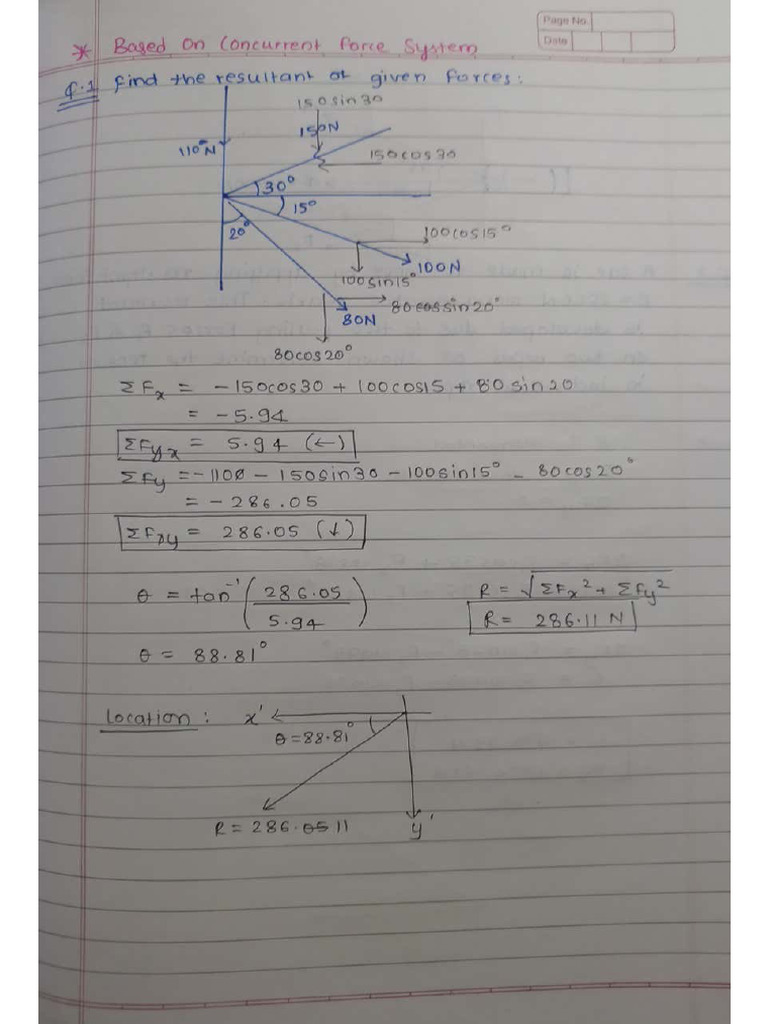 Page No.
Date
* Based on Concurrent force System
Q.1 find the resultant of given forces:
150sin30
150N
110N
150cos30
30°
15°
20°
100cos15°
100N
100sin15°
80sin20°
80N
80cos20°
ΣFx = -150cos30 + 100cos15 + 80sin20
= -5.94
ΣFx = 5.94 (←)
ΣFy = -110 - 150sin30 - 100sin15° - 80cos20°
= -286.05
ΣFy = 286.05 (↓)
θ = tan⁻¹(286.05/5.94)
R = √ΣFx² + ΣFy²
R = 286.11 N
θ = 88.81°
Location: x'
θ = 88.81°
R = 286.11
y'